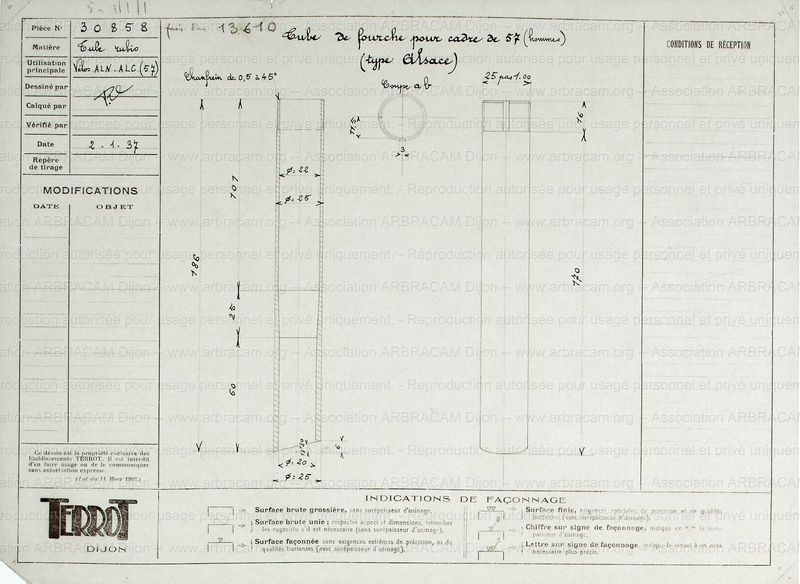 Pièce No 30858
Matière Tube rubis
Utilisation principale Vélos ALN-ALC (57)
Dessiné par
Calqué par
Vérifié par
Date 2.1.37
Repère de tirage
MODIFICATIONS
DATE OBJET
13610
Tube de fourche pour cadre de 57 (hommes)
(type Alsace)
CONDITIONS DE RÉCEPTION
Chanfrein de 0,5 à 45°
Coupe ab
25 pas 1.00
17,5
3
16
ø=22
ø=25
101
186
25
60
170
6
ø=20
ø=25
Ce dessin est la propriété exclusive des
Etablissements TERROT. Il est interdit
d'en faire usage ou de le communiquer
sans autorisation expresse.
(Loi du 11 Mars 1902.)
TERROT
DIJON
INDICATIONS DE FAÇONNAGE
Surface brute grossière, sans surépaisseur d'usinage.
Surface brute unie; respecter aspect et dimensions, retoucher
les rugosités s'il est nécessaire (sans surépaisseur d'usinage).
Surface façonnée sans exigences extrêmes de précision, ni de
qualités frottantes (avec surépaisseur d'usinage).
Surface finie, exigences spéciales, de précision et de qualités
frottantes (avec surépaisseur d'usinage).
Chiffre sur signe de façonnage, indique en
paisseur d'usinage.
Lettre sur signe de façonnage, indique le renvoi à un nota
nécessaire plus précis.
Association ARBRACAM Dijon - www.arbracam.org - Association ARBRACAM Dijon
Reproduction autorisée pour usage personnel et privé uniquement.